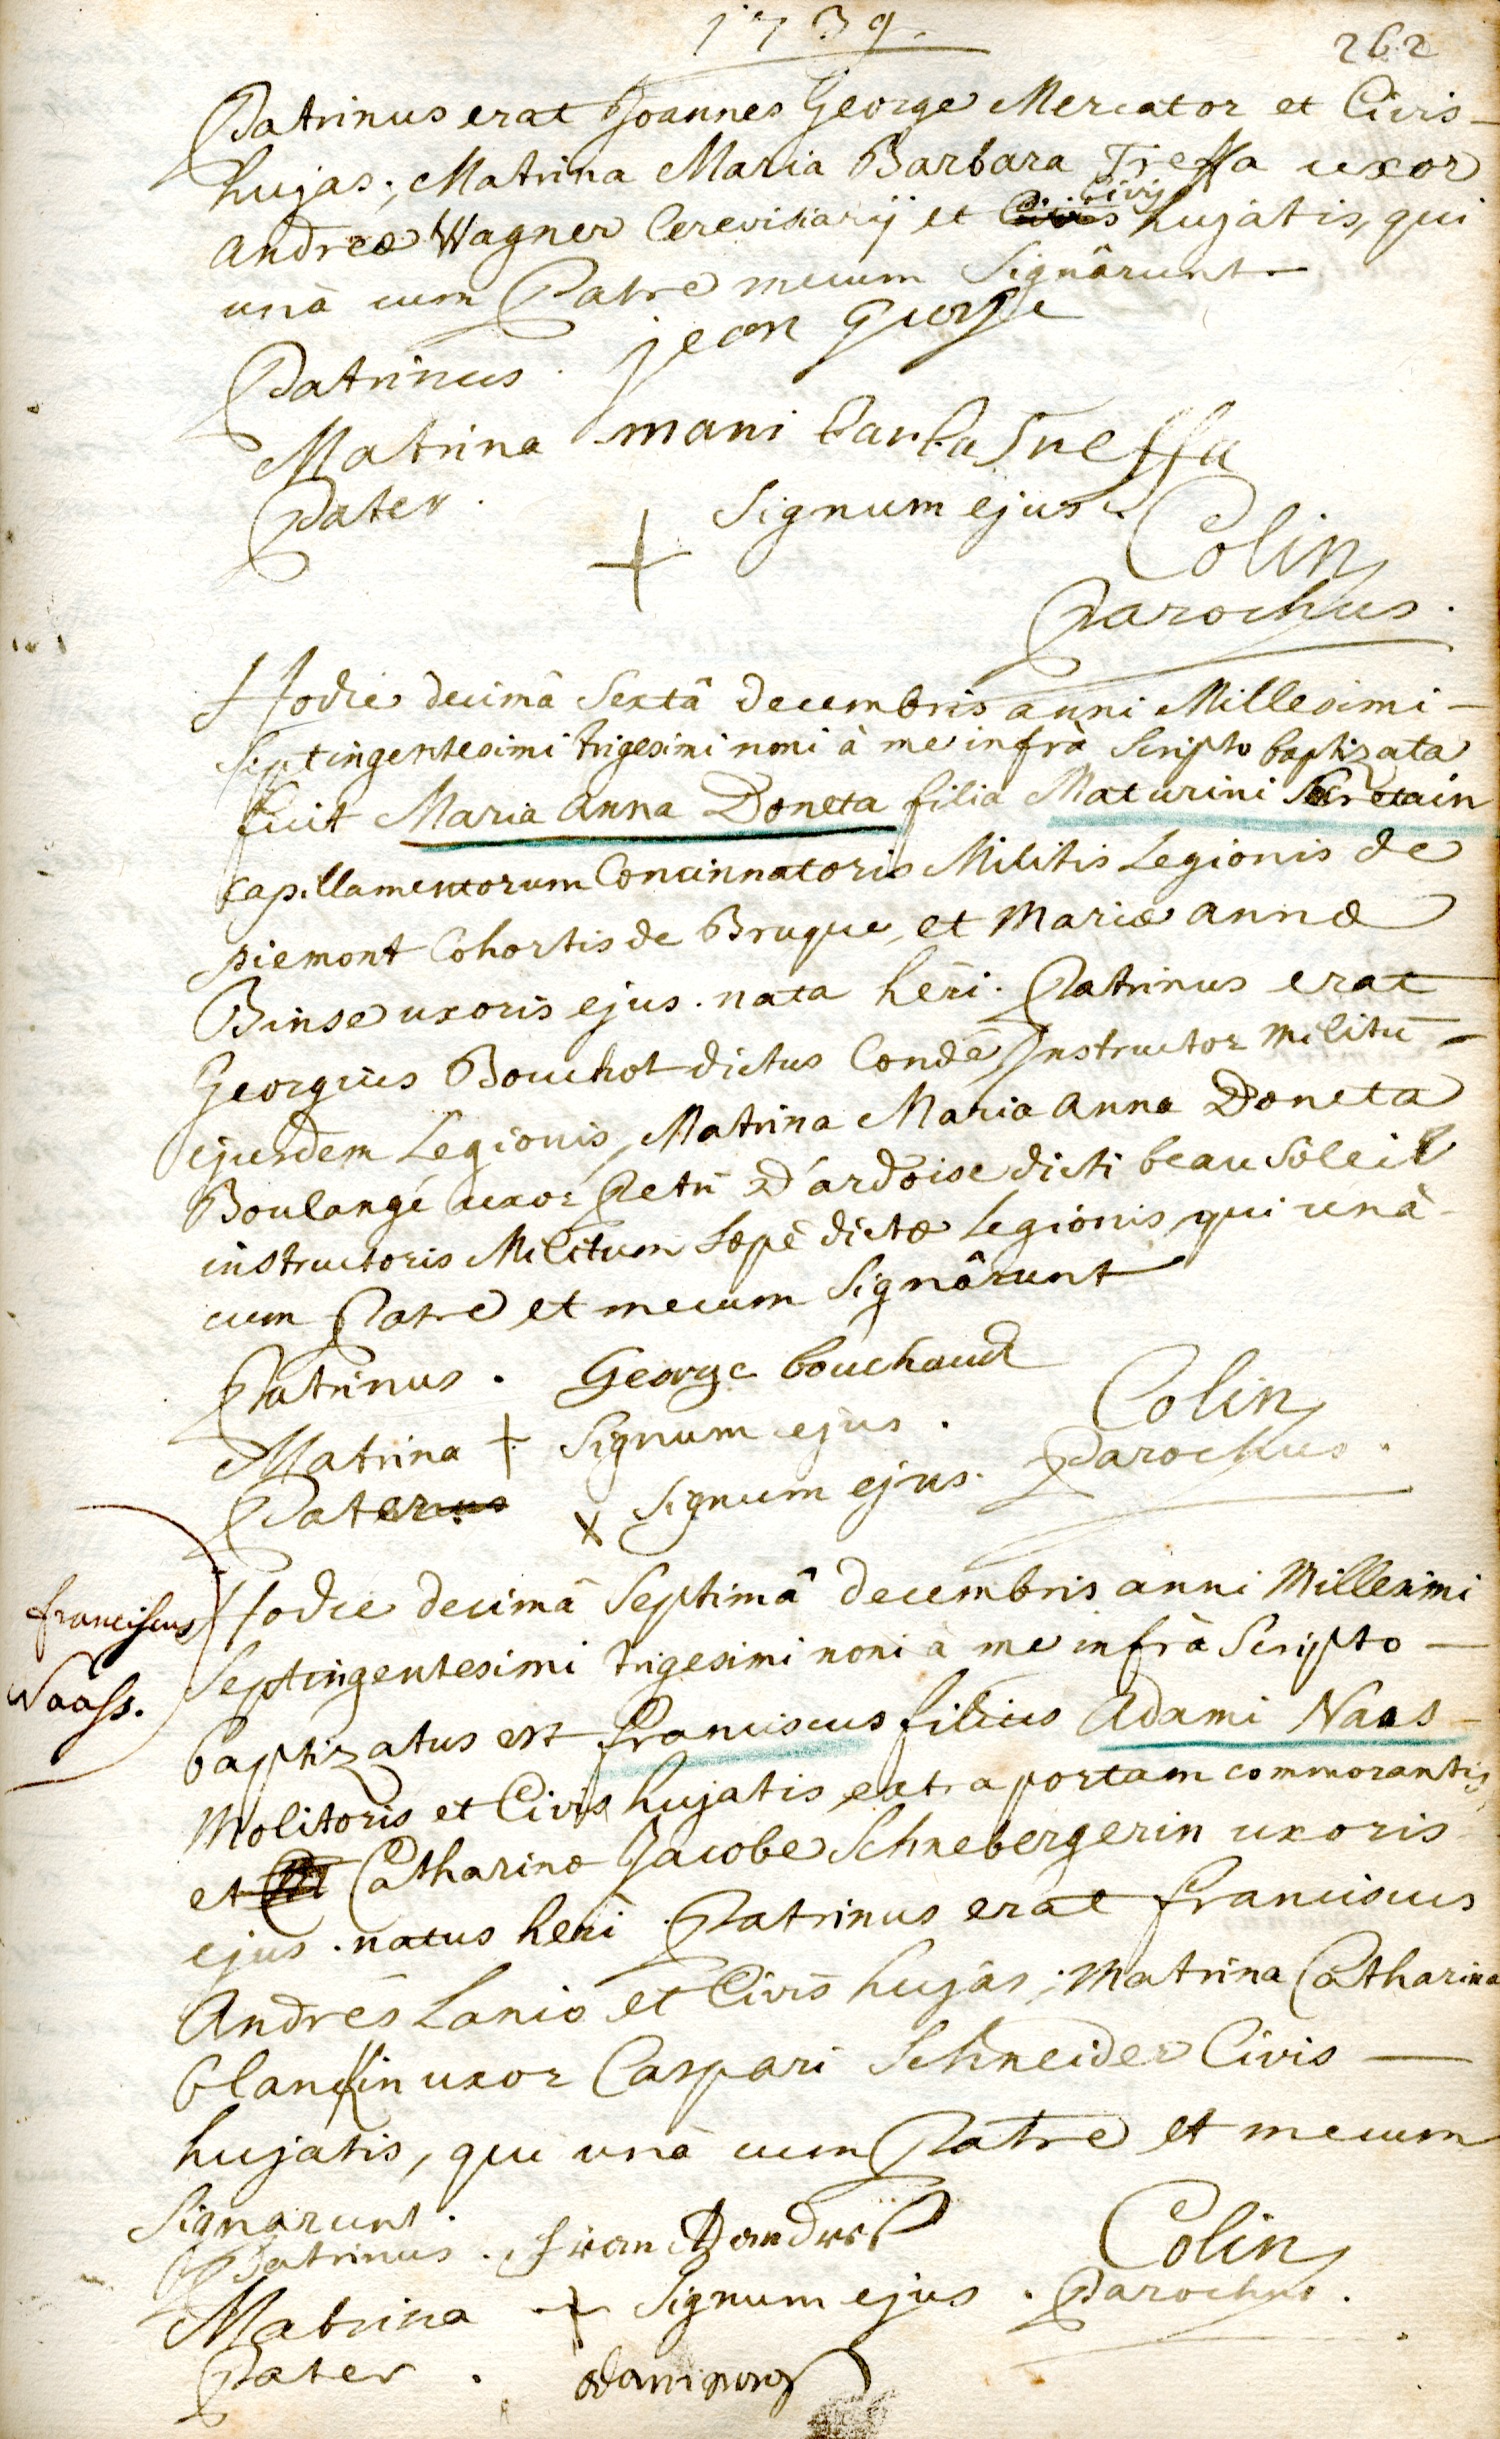 1739.
262
Patrinus erat Joannes George Mercator et Civis
hujas; Matrina Maria Barbara Treffa uxor
Andreæ Wagner Cerevisiarij et Civis Civis hujatis, qui
unà cum Patre mecum Signârunt
Patrinus. jean George
Matrina mari barba Treffa
Pater. + Signum ejus. Colin
Parochus.
Hodie decimâ Sextâ decembris anni Millesimi
Septingentesimi trigesimi noni à me infrà Scripto baptizata
fuit Maria Anna Doneta filia Maturini Secretain
capillamentorum Concinnatoris Militis Legionis de
piemont Cohortis de Bruque, et Mariæ annæ
Binse uxoris ejus. nata heri. Patrinus erat
Georgius Bouchot dictus Condé Instructor militū
ejusdem Legionis, Matrina Maria Anna Doneta
Boulangé uxor Petri D'ardoise dicti beau Soleil
instructoris Militum Sæpè dictæ Legionis, qui unà
cum Patre et mecum Signârunt
Patrinus. George bouchaud
Matrina + Signum ejus. Colin
Paterus x Signum ejus. Parochus.
franciscus
Naass.
Hodie decimâ Septimâ decembris anni Millesimi
Septingentesimi trigesimi noni à me infrà Scripto
baptizatus est franciscus filius Adami Naas
Molitoris et Civis hujatis extra portam commorantis,
et Catharinæ Jacobe Schnebergerin uxoris
ejus. natus heri. Patrinus erat franciscus
Andrés Lanio et Civis hujas; Matrina Catharina
blankin uxor Caspari Schneider Civis
hujatis, qui unà cum Patre et mecum
Signarunt.
Patrinus. Colin
Matrina + Signum ejus. Parochus.
Pater.